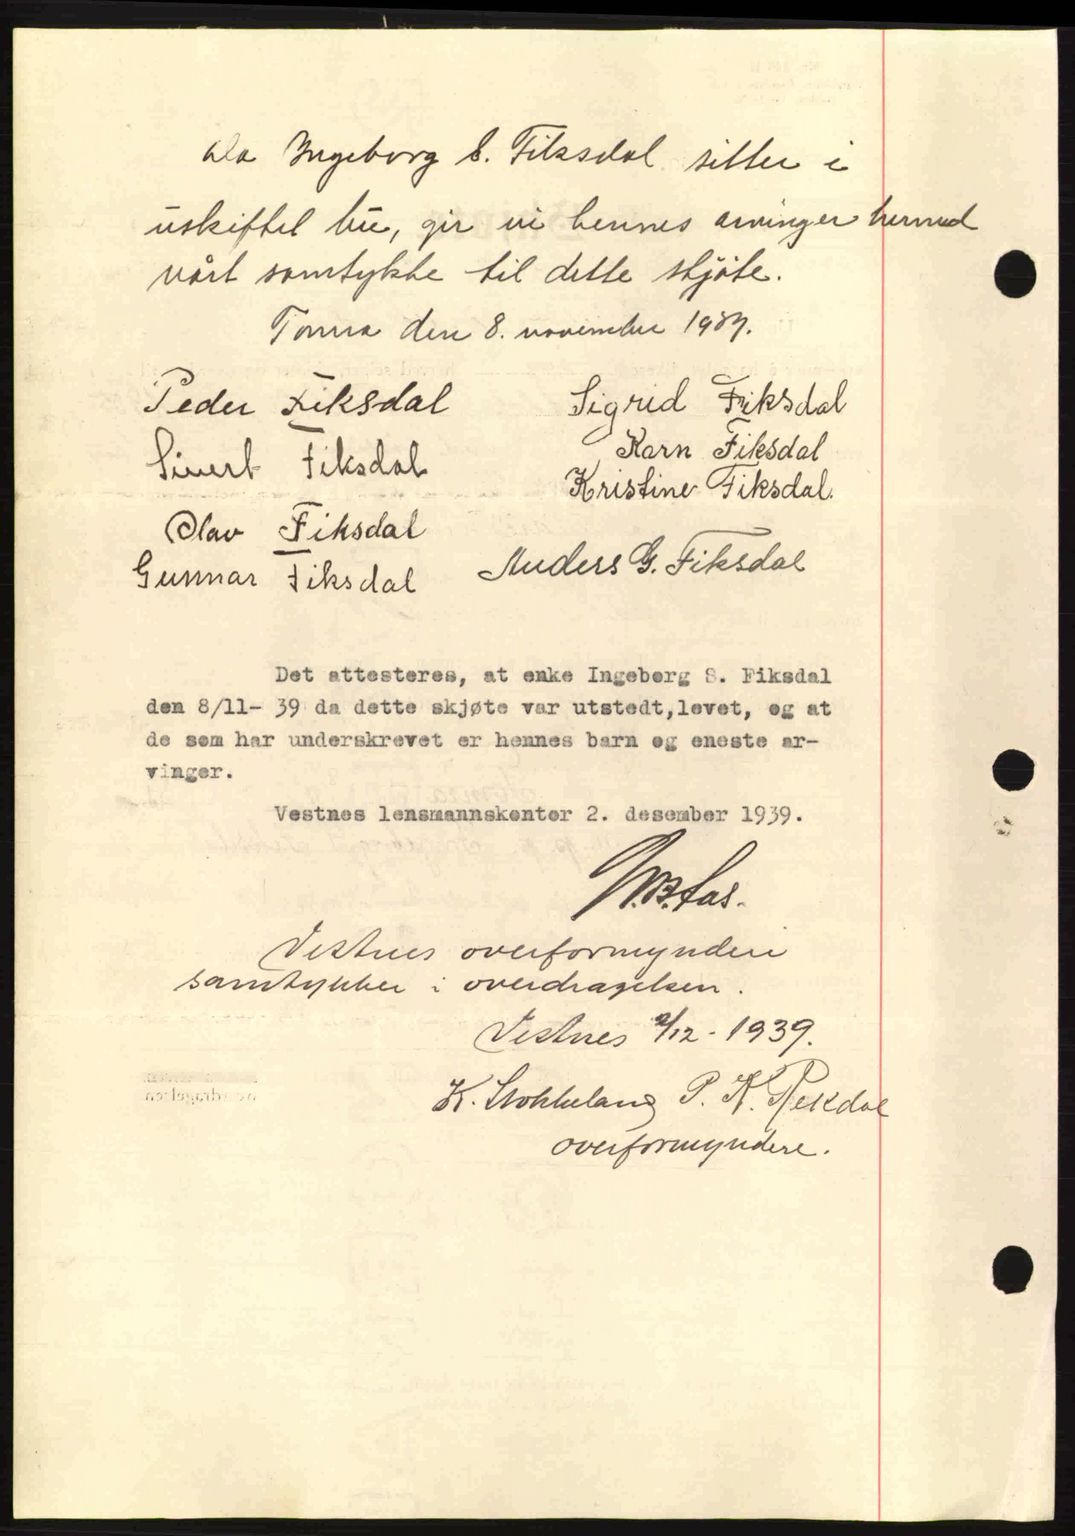 da Ingeborg S. Fiksdal sitter i
uskiftet bu, gir vi hennes arvinger hermed
vårt samtykke til dette skjøte.
Tomra den 8. november 1939.
Peder Fiksdal
Sigrid Fiksdal
Sivert Fiksdal
Karn Fiksdal
Kristine Fiksdal.
Olav Fiksdal
Gunnar Fiksdal
Anders G. Fiksdal
Det attesteres, at enke Ingeborg S. Fiksdal
den 8/11- 39 da dette skjøte var utstedt,levet, og at
de som har underskrevet er hennes barn og eneste ar-
vinger.
Vestnes lensmannskontor 2. desember 1939.
Vestnes overformynderi
samtykker i overdragelsen.
Vestnes 2/12 - 1939.
K. Stokkeland P. K. Rekdal
overformyndere.